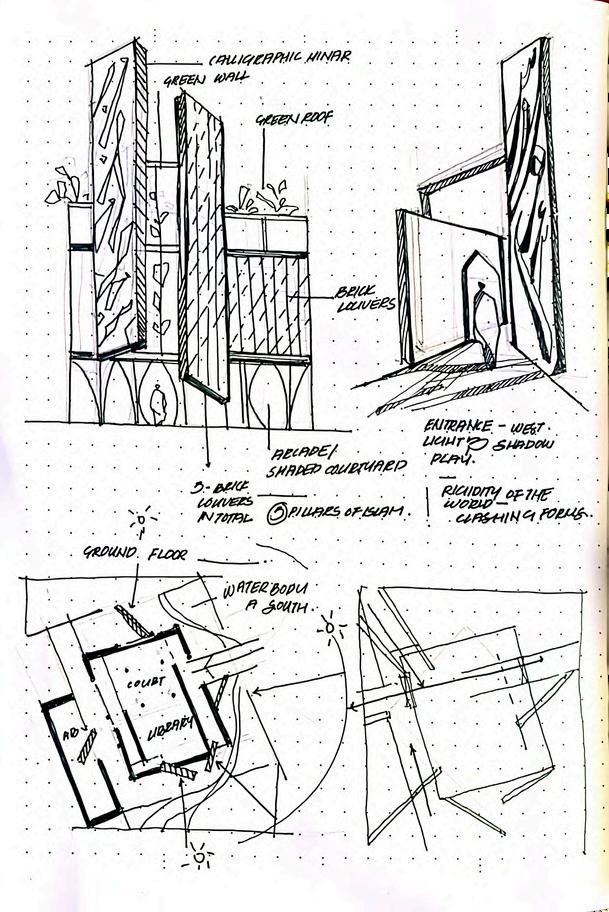 CALLIGRAPHIC MINAR
GREEN WALL
GREEN ROOF
BRICK
LOUVERS
ARCADE/
SHADED COURTYARD
5- BRICK
LOUVERS
IN TOTAL
5 PILLARS OF ISLAM.
ENTRANCE - WEST.
LIGHT & SHADOW
PLAY.
RIGIDITY OF THE
WORLD -
CLASHING FORMS.
GROUND FLOOR
N
WATERBODY
SOUTH.
COURT
LIBRARY